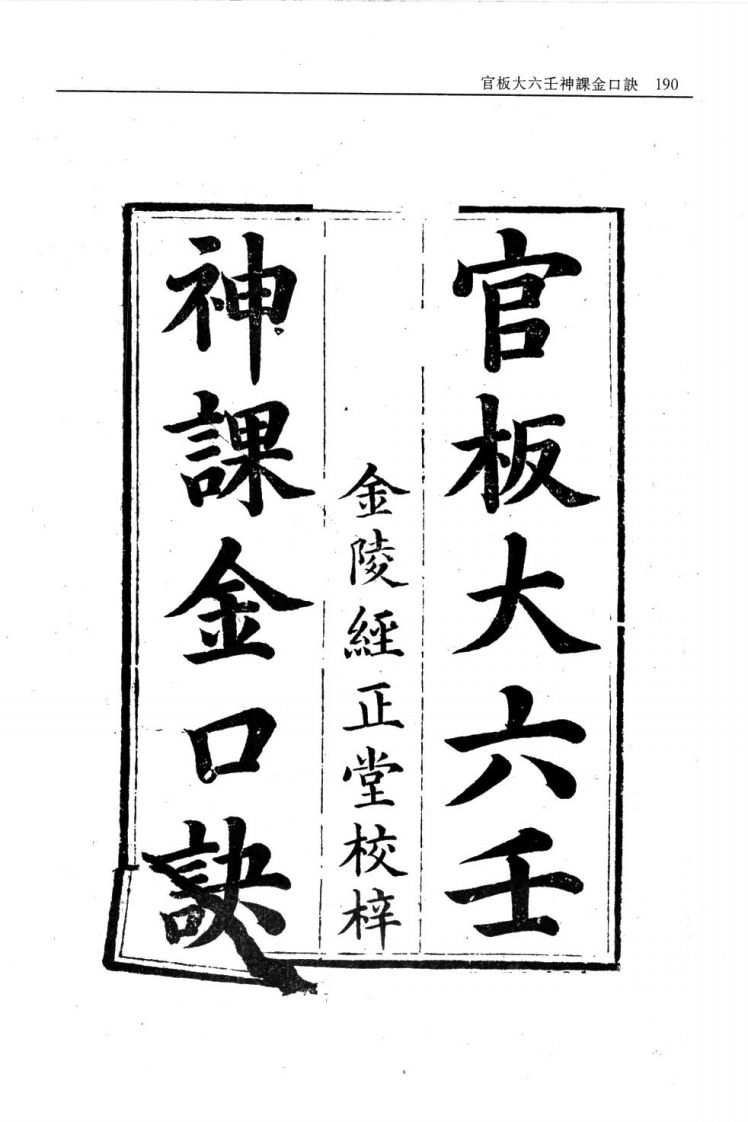 官板大六壬神課金口訣 190
官板大六壬
金陵經正堂校梓
神課金口訣